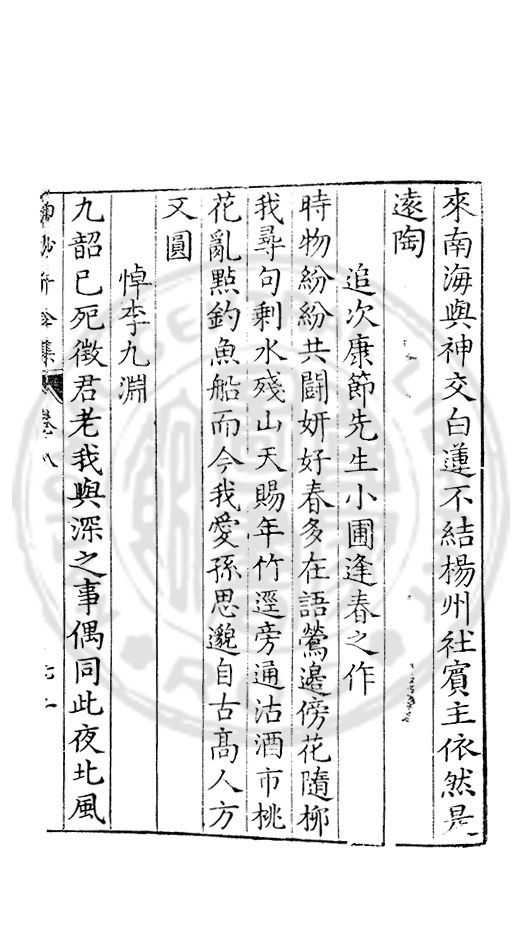 來南海與神交白蓮不結楊州社賓主依然是
遠陶
追次康節先生小圃逢春之作
時物紛紛共鬪妍好春多在語鶯邊傍花隨柳
我尋句剩水殘山天賜年竹逕旁通沽酒市桃
花亂點釣魚船而今我愛孫思邈自古高人方
又圓
悼李九淵
九韶已死徵君老我與深之事偶同此夜北風
集 卷八